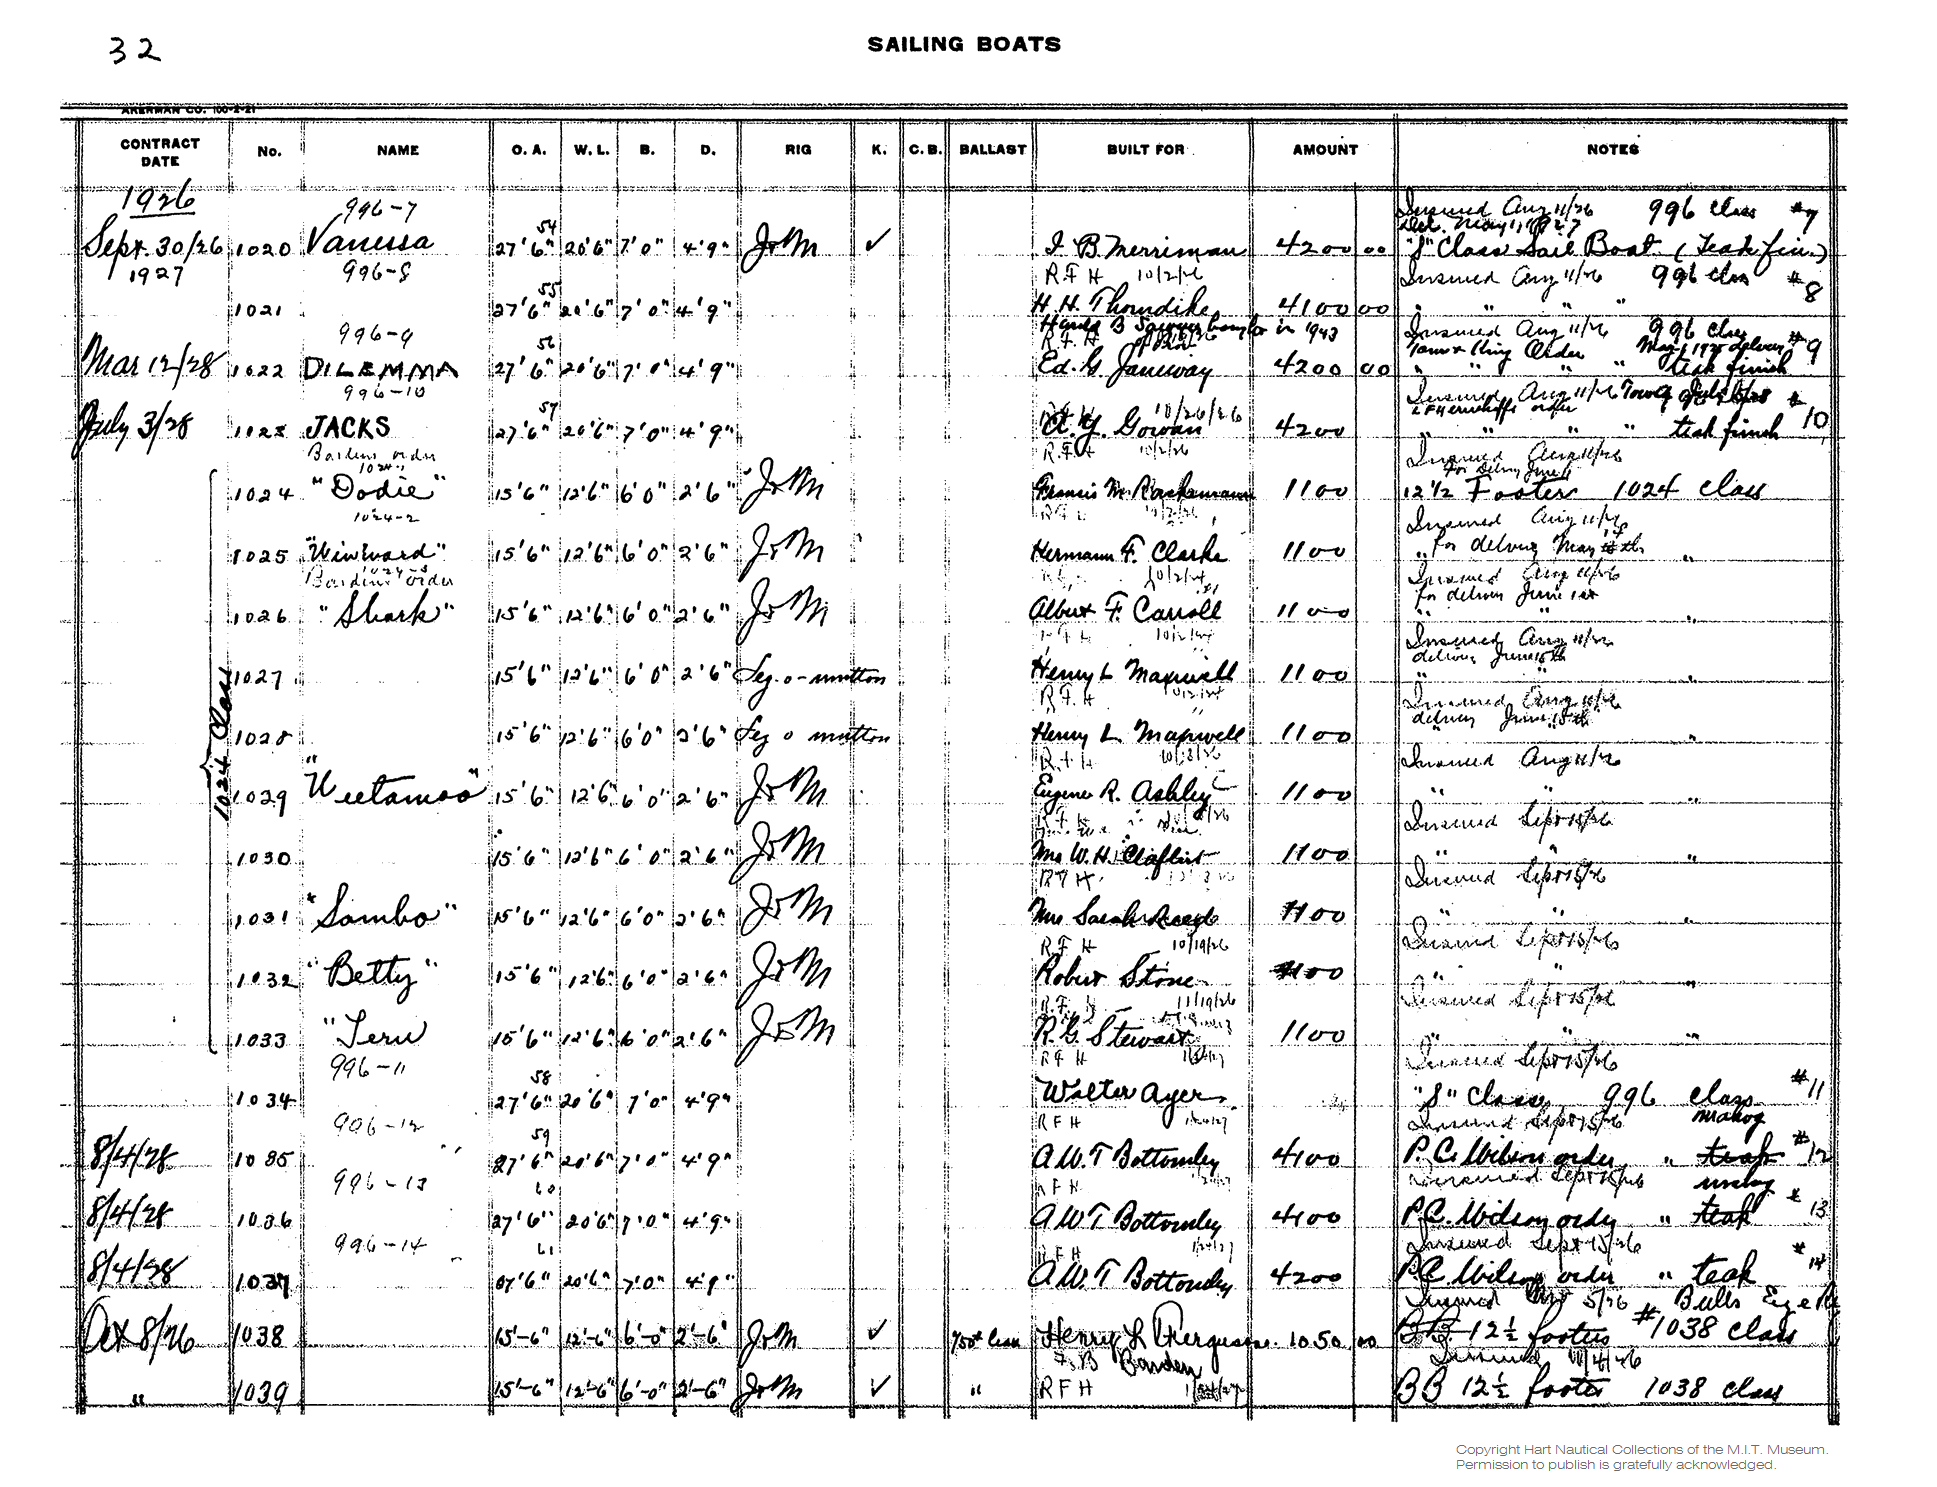 32
SAILING BOATS
AKERMAN CO. 100-2-21
CONTRACT DATE No. NAME O. A. W. L. B. D. RIG K. C. B. BALLAST BUILT FOR AMOUNT NOTES
1926 996-7 Insured Aug 11/26 996 class #7
54 Del. May 1, 1927
Sept. 30/26 1020 Vanessa 27'6" 20'6" 7'0" 4'9" J & M ✓ I B Merriman 4200 00 "S" Class Sail Boat (Teak fin.)
1927 996-8 R F H 10/2/26 Insured Aug 11/26 996 class #8
55
1021 27'6" 20'6" 7'0" 4'9" H. H. Thorndike 4100 00 " " " "
996-9 Harold B Sawyer bought in 1943 Insured Aug 11/26 996 class #9
56 R. F. H Order
Mar 12/28 1022 DILEMMA 27'6" 20'6" 7'0" 4'9" Ed. G. Janeway 4200 00 " " " " teak finish
996-10 Insured Aug 11/26
57 10/26/26 order #10
July 3/28 1023 JACKS 27'6" 20'6" 7'0" 4'9" A. Y. Gowan 4200 " " " " teak finish
Bardens order R. F. H 10/2/26 Insured Aug 11/26
1024-1 For Delivery June 1
1024 "Dodie" 15'6" 12'6" 6'0" 2'6" J & M Francis M. 1100 12 1/2 Footer 1024 Class
1024-2 R F H 10/2/26 Insured Aug 11/26
1025 15'6" 12'6" 6'0" 2'6" J & M Hermann F. Clarke 1100 " for delivery May "
1024-3 10/2/26 Insured Aug 11/26
Bardens order for delivery June 1st
1026 "Shark" 15'6" 12'6" 6'0" 2'6" J & M Albert F. Carroll 1100 " " "
R F H 10/2/26 Insured Aug 11/26
delivery June 15th
1027 15'6" 12'6" 6'0" 2'6" Leg-o-mutton Henry L Maxwell 1100 " " "
R. F. H 10/2/26 Insured Aug 11/26
delivery June 15th
1024 Class
1028 15'6" 12'6" 6'0" 2'6" Leg o mutton Henry L Maxwell 1100 " "
R. F. H 10/18/26 Insured Aug 11/26
1029 "Weetamoo" 15'6" 12'6" 6'0" 2'6" J & M Eugene R. Ashley 1100 " " "
R F H Insured Sept 15/26
1030 15'6" 12'6" 6'0" 2'6" J & M Mrs W. H. Claflin 1100 " " "
R F H Insured Sept 15/26
1031 "Sambo" 15'6" 12'6" 6'0" 2'6" J & M Mrs Sarah 1100 " " "
R F H 10/19/26 Insured Sept 15/26
1032 "Betty" 15'6" 12'6" 6'0" 2'6" J & M Robert Stone 1100 " " "
R. F. H 11/19/26 Insured Sept 15/26
1033 "Tern 15'6" 12'6" 6'0" 2'6" J & M R. G. Stewart 1100 " " "
996-11 R F H Insured Sept 15/26
58
1034 27'6" 20'6" 7'0" 4'9" Walter Ayer "S" Class 996 class #11
996-12 R F H Insured Sept 15/26 mahog
59
8/4/28 1035 27'6" 20'6" 7'0" 4'9" A. W. T Bottomley 4100 P. C. Wilson order " teak #12
996-13 R F H Insured Sept 15/26 mahog
60
8/4/28 1036 27'6" 20'6" 7'0" 4'9" A W T Bottomley 4100 P. C. Wilson order " teak #13
996-14 R F H Insured Sept 15/26
61
8/4/28 1037 27'6" 20'6" 7'0" 4'9" A. W. T Bottomley 4200 P. C. Wilson order " teak #14
Insured 5/26 # Bulls Eye
Oct 8/26 1038 15'-6" 12'-6" 6'-0" 2'-6" J & M ✓ 750# lead Henry L Ferguson 1050 00 BB 12 1/2 footer #1038 class
F. B Barden Insured
" 1039 15'-6" 12'-6" 6'-0" 2'-6" J & M ✓ " R F H BB 12 1/2 footer 1038 class
Copyright Hart Nautical Collections of the M.I.T. Museum.
Permission to publish is gratefully acknowledged.